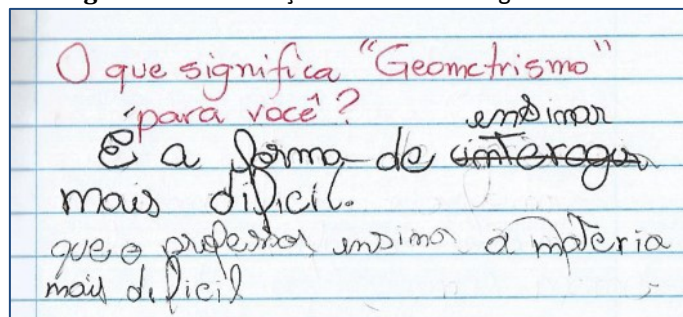 O que significa "Geometrismo"
para você?
ensinar
É a forma de interogar
mais dificil.
que o professor ensina a materia
mais dificil